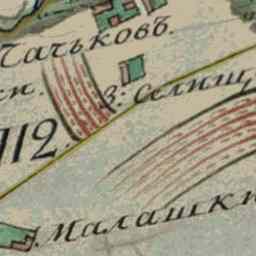 Тачьковъ.
ки.
З: Селищ
112.
Малашки